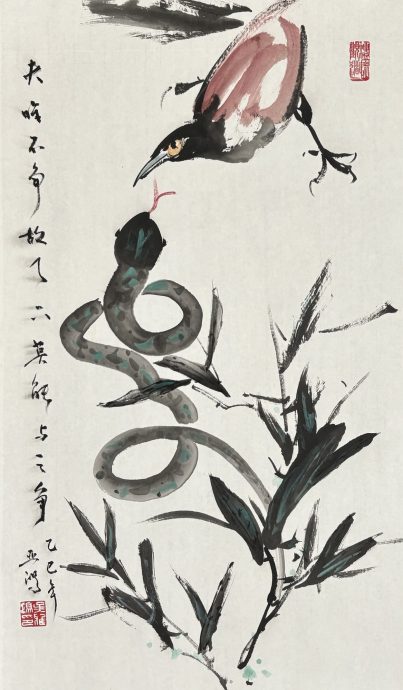 夫唯不争故天下莫能与之争
乙巳年